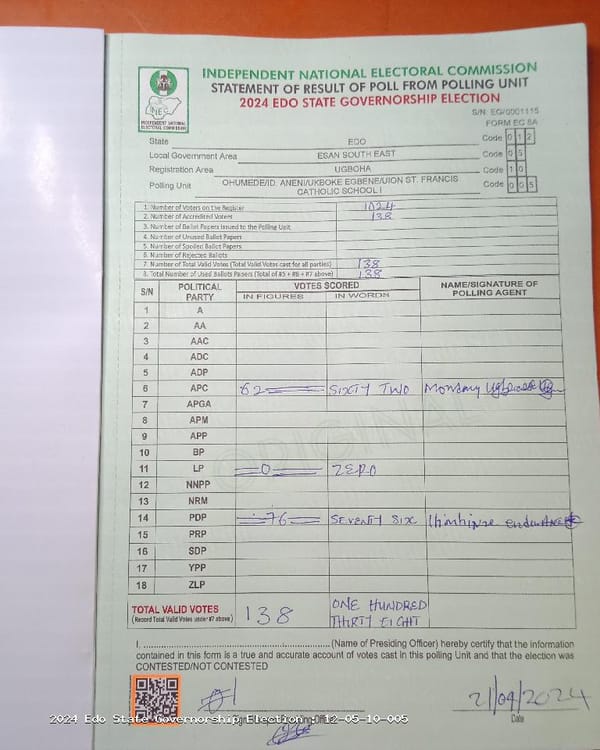 INDEPENDENT NATIONAL ELECTORAL COMMISSION
STATEMENT OF RESULT OF POLL FROM POLLING UNIT
2024 EDO STATE GOVERNORSHIP ELECTION
INEC
INDEPENDENT NATIONAL
ELECTORAL COMMISSION
S/N: EG/0001115
FORM EC 8A
State EDO Code 0 1 2
Local Government Area ESAN SOUTH EAST Code 0 5
Registration Area UGBOHA Code 1 0
Polling Unit OHUMEDE/ID. ANENI/UKBOKE EGBENE/UION ST. FRANCIS CATHOLIC SCHOOL I Code 0 0 5
1. Number of Voters on the Register 1024
2. Number of Accredited Voters 138
3. Number of Ballot Papers Issued to the Polling Unit
4. Number of Unused Ballot Papers
5. Number of Spoiled Ballot Papers
6. Number of Rejected Ballots
7. Number of Total Valid Votes (Total Valid Votes cast for all parties) 138
8. Total Number of Used Ballots Papers (Total of #5 + #6 + #7 above) 138
S/N POLITICAL PARTY VOTES SCORED NAME/SIGNATURE OF POLLING AGENT
IN FIGURES IN WORDS
1 A
2 AA
3 AAC
4 ADC
5 ADP
6 APC 62 SIXTY TWO Monday
7 APGA
8 APM
9 APP
10 BP
11 LP 0 ZERO
12 NNPP
13 NRM
14 PDP 76 SEVENTY SIX
15 PRP
16 SDP
17 YPP
18 ZLP
ORIGINAL
TOTAL VALID VOTES 138 ONE HUNDRED
(Record Total Valid Votes under #7 above) THIRTY EIGHT
I, ........ (Name of Presiding Officer) hereby certify that the information
contained in this form is a true and accurate account of votes cast in this polling Unit and that the election was
CONTESTED/NOT CONTESTED
21/09/2024
Date
2024 Edo State Governorship Election - 12-05-10-005